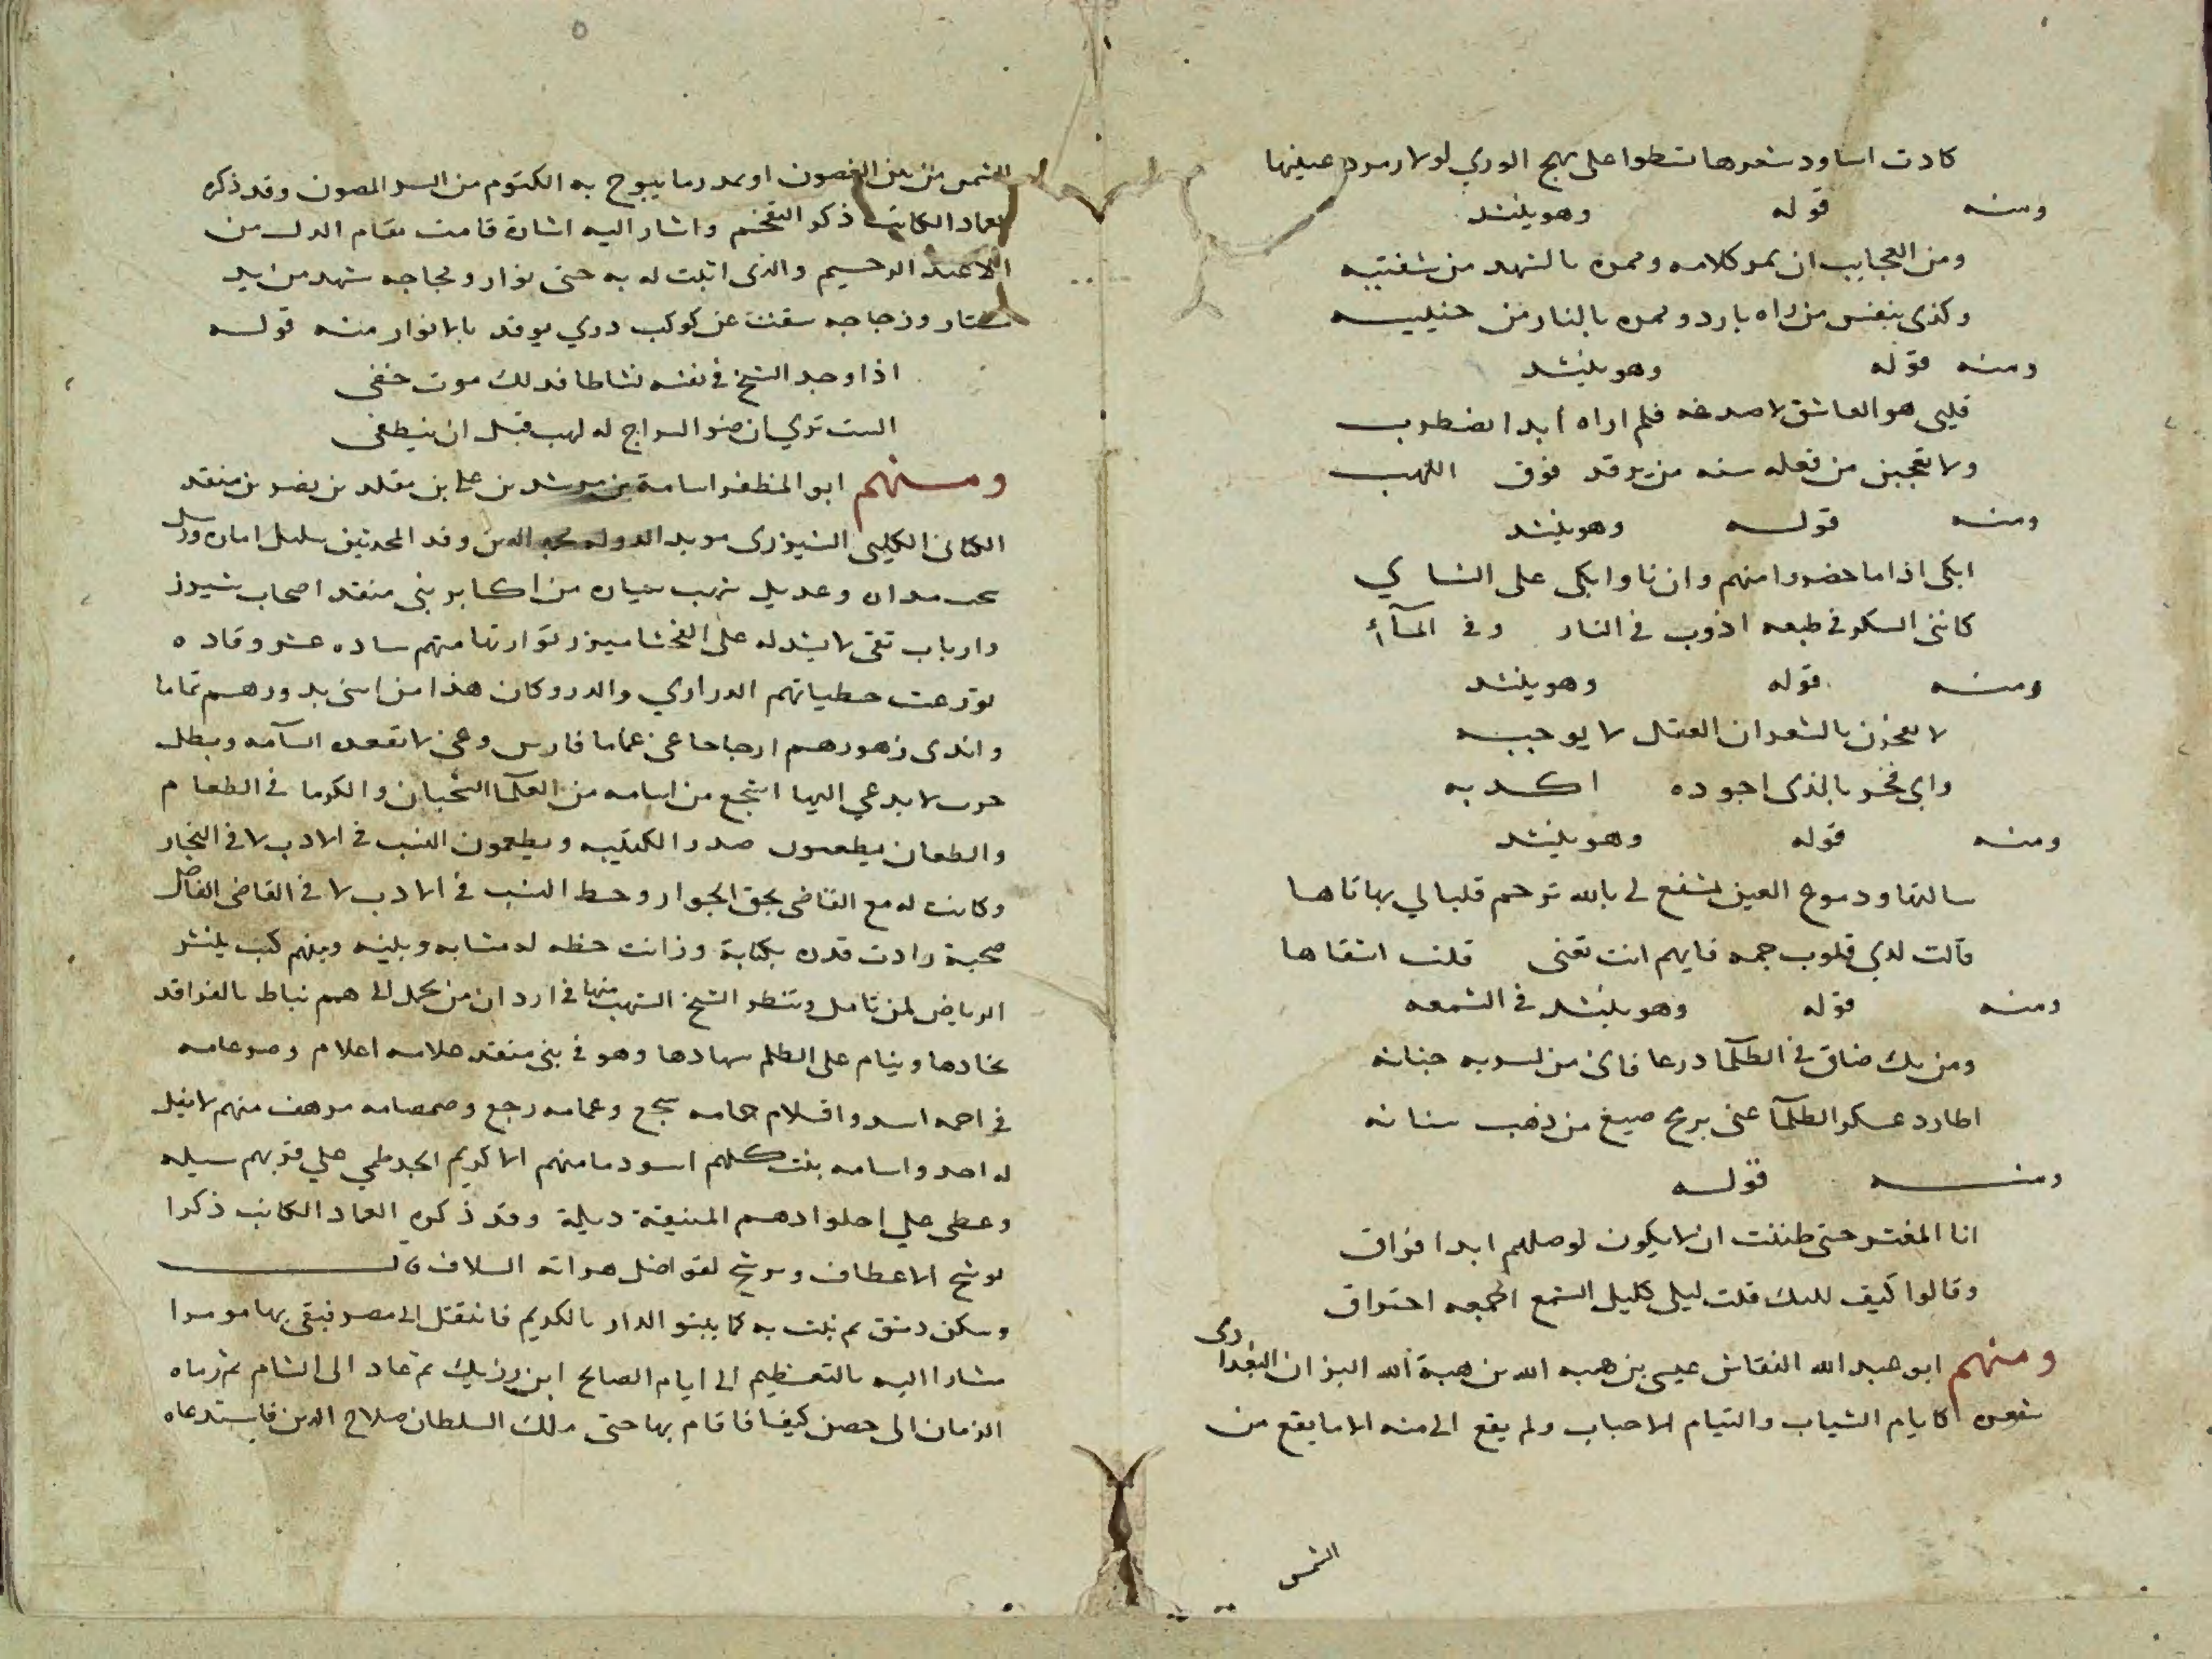 كادت اساود شعرها تسطوا على مهج الوري لولا زمرد عينها
ومنه قوله وهو ينشد
ومن العجايب ان يمر كلامه وممره بالشهد من شفتيه
وكذى بنفس من راه بارد وممره بالنار من
ومنه قوله وهو ينشد
قلبي هو العاشق لا صدغه فلم اراه ابدا يضطرب
ولا تعجبن من فعله منه من يرقد فوق اللهب
ومنه قوله وهو ينشد
ابكى اذا ما حضروا منهم وان ناوا ابكى على النا ي
كانني السكر في طبعه اذوب في النار وفي المآء
ومنه قوله وهو ينشد
لا تفخرن بالشعر ان العقل لا يوجبه
واي فخر بالذى اجوده اكذبه
ومنه قوله وهو ينشد
سالتها ودموع العين تشفع لي بالله ترحم قلبا لي بها تاها
قالت لدي قلوب جمه فايهم انت تعنى قلت اشقاها
ومنه قوله وهو ينشد في الشمعه
ومن يك ضاق في الظلما درعا فاى من جنانه
اطارد عسكر الظلمآ عنى برمح صيغ من ذهب سنانه
ومنه قوله
انا المغتر حتى ظننت ان لا يكون لوصلهم ابدا فراق
وقالوا كيف ليلك قلت ليلى كليل الشمع اجمعه احتراق
ومنهم ابو عبد الله النقاش عيسى بن هبه الله بن هبة الله البزان البغدادى
شعره كايام الشباب والتيام الاحباب ولم يقع الى منه الا ما يقع من
الشمس
الشمس من بين الغصون او بمدر ما يبوح به الكتوم من السر المصون وقد ذكره
العماد الكاتب ذكر التفخيم واشار اليه اشارة قامت مقام الدل من
الاعبد الرحيم والذى اثبت له به حتى نوار ومجاجه شهد من ايد
مشتار وزجاجه سقتت عن كوكب دري يوقد بالانوار منه قوله
اذا وجد الشيخ في نفسه نشاطا فذلك موت خفى
الست تري ان ضو السراج له لهب قبل ان ينطفى
ومنهم ابو المظفر اسامة بن مرشد بن على بن مقلد بن نصر بن منقد
الكنانى الكلبي الشيزرى مويد الدوله مجد الدين وفد المحدثين سليل امان
وعديل شهب من اكابر بنى منقد اصحاب شيزر
وارباب تقى لا
لو ترعت حطياتهم الدراري والدر وكان هذا من اسنى بدورهم تماما
واندى زهورهم ارجا حاعى عماما فارس وعى لا تقعده السآمه وبطل
حرب لا يدعى اليها اشجع من اسامه من العلما الشجعان والكرما في الطعام
والطعان يطعمون صدر الكتيبه ويطعمون النسب في الادب لا في النجار
وكانت له مع القاضى بحق الجوار وحط النسب في الادب لا في القاضى الفاضل
صحبة زادت قدره بكتابة وزانت حظه له مشابه وبلينه وبينهم كتب ينشر
الرياض لمن تامل وتنظر الشيخ الشهب منها في اردان من يحمل الى همم نياط بالفراقد
نجادها وينام على الظلم سهادها وهو في بنى منقد علامه اعلام وضرغامه
في اجمه اسد واقلام حمامه سجع وغمامه رجع وصمصامه مرهف منهم لا يفل
له احد واسامه بنت كلهم اسود ما منهم الا كريم الجد طمي علي قربهم سيله
وعطى علي اطوادهم المنيعة ديلة وقد ذكره العماد الكاتب ذكرا
يوشح الاعطاف ويرشح لفواضل هراته السلاف قال
وسكن دمشق ثم نبت به كما ينبو الدار بالكريم فانتقل الى مصر فبقى بها مومرا
مشارا اليه بالتعظيم الى ايام الصالح ابن رزيك ثم عاد الى الشام ثم رماه
الزمان الى حصن كيفا فاقام بها حتى ملك السلطان صلاح الدين فاستدعاه